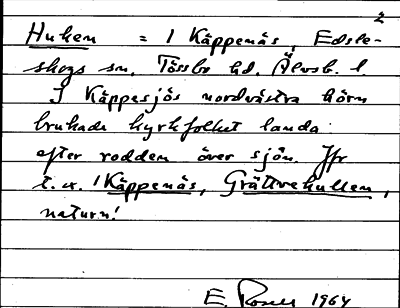 2
Huken = 1 Käppenäs, Edsle-
skogs sn, Tössbo hd, Älvsb. l.
I Käppesjös nordvästra hörn
brukade kyrkfolket landa
efter rodden över sjön. Jfr
t. ex. 1 Käppenäs, Grättvehullen,
naturn!
E. Rosell 1964